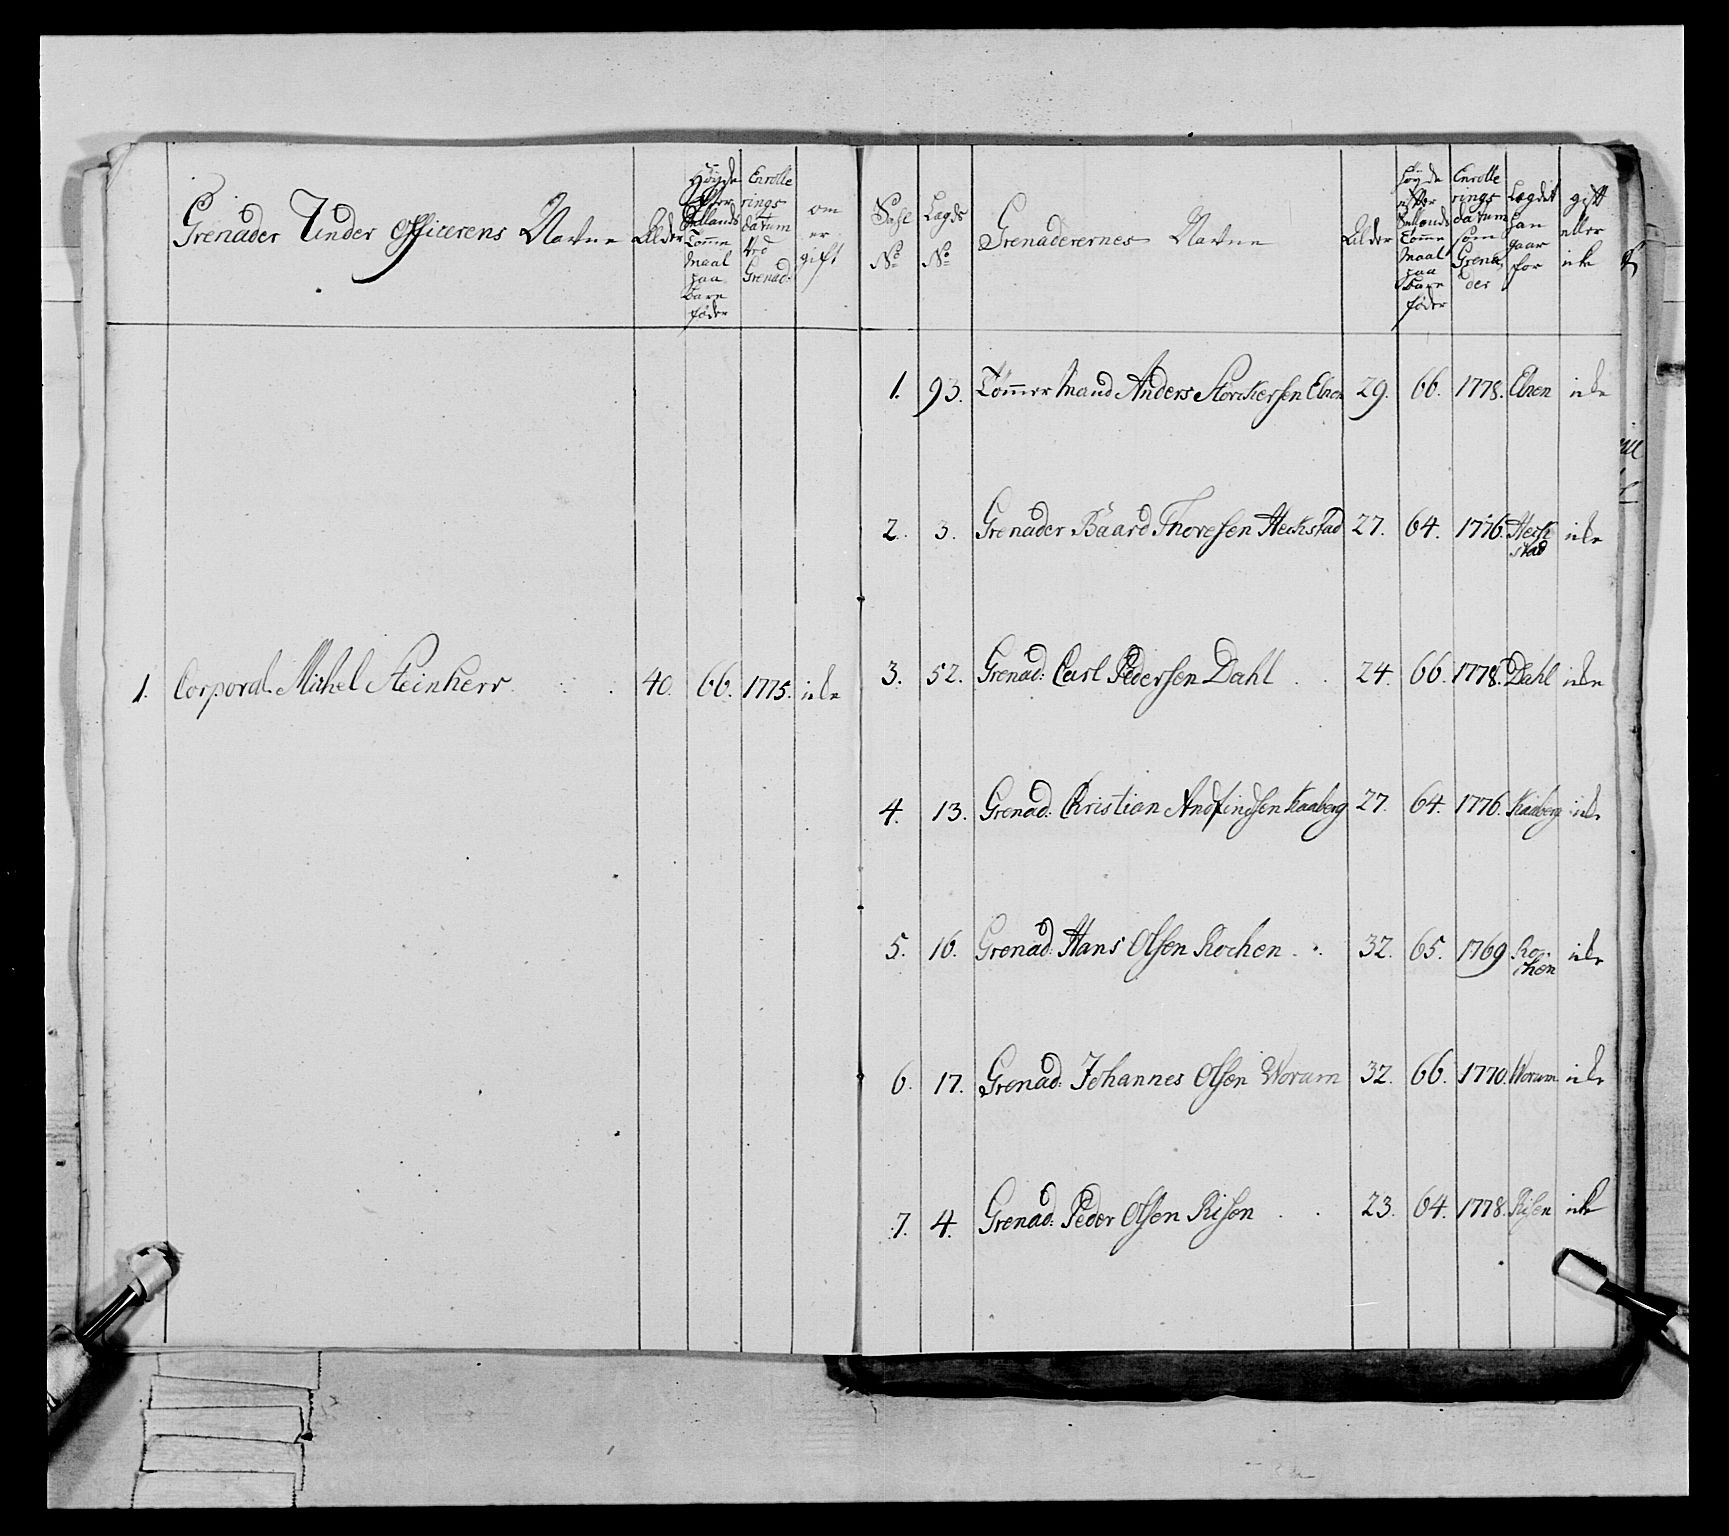 Grenader Under Officerens Navne
Alder
Høyde efter Sællands Tomme Maal paa Bare føder
Enrolle rings datum ved Grenad:
om er gift
1. Corporal Michel Steinkerr . . . 40. 66. 1775. icke
Tahl No
Lægds No
Grenaderernes Navne
Alder
Høyde efter Sællands Tomme Maal paa Bare føder
Enrolle rings datum som Grena der
Lægdet han gaar for
gift eller icke
1. 93. Tømmer Mand Anders Storckersen Elnen 29. 66. 1778. Elnen icke
2. 3. Grenader Baard Thoresen Heckstad 27. 64. 1776. Heck stad icke
3. 52. Grenad: Carl Pedersen Dahl . . 24. 66. 1778. Dahl icke
4. 13. Grenad: Christian Andfindsen Kaaberg 27. 64. 1776. Kaaberg icke
5. 16. Grenad: Hans Olsen Rochen . . 32. 65. 1769 Ro- chen icke
6. 17. Grenad: Johannes Olsen Worum 32. 66. 1770. Worum icke
7. 4. Grenad: Peder Olsen Risen . . 23. 64. 1778. Risen icke